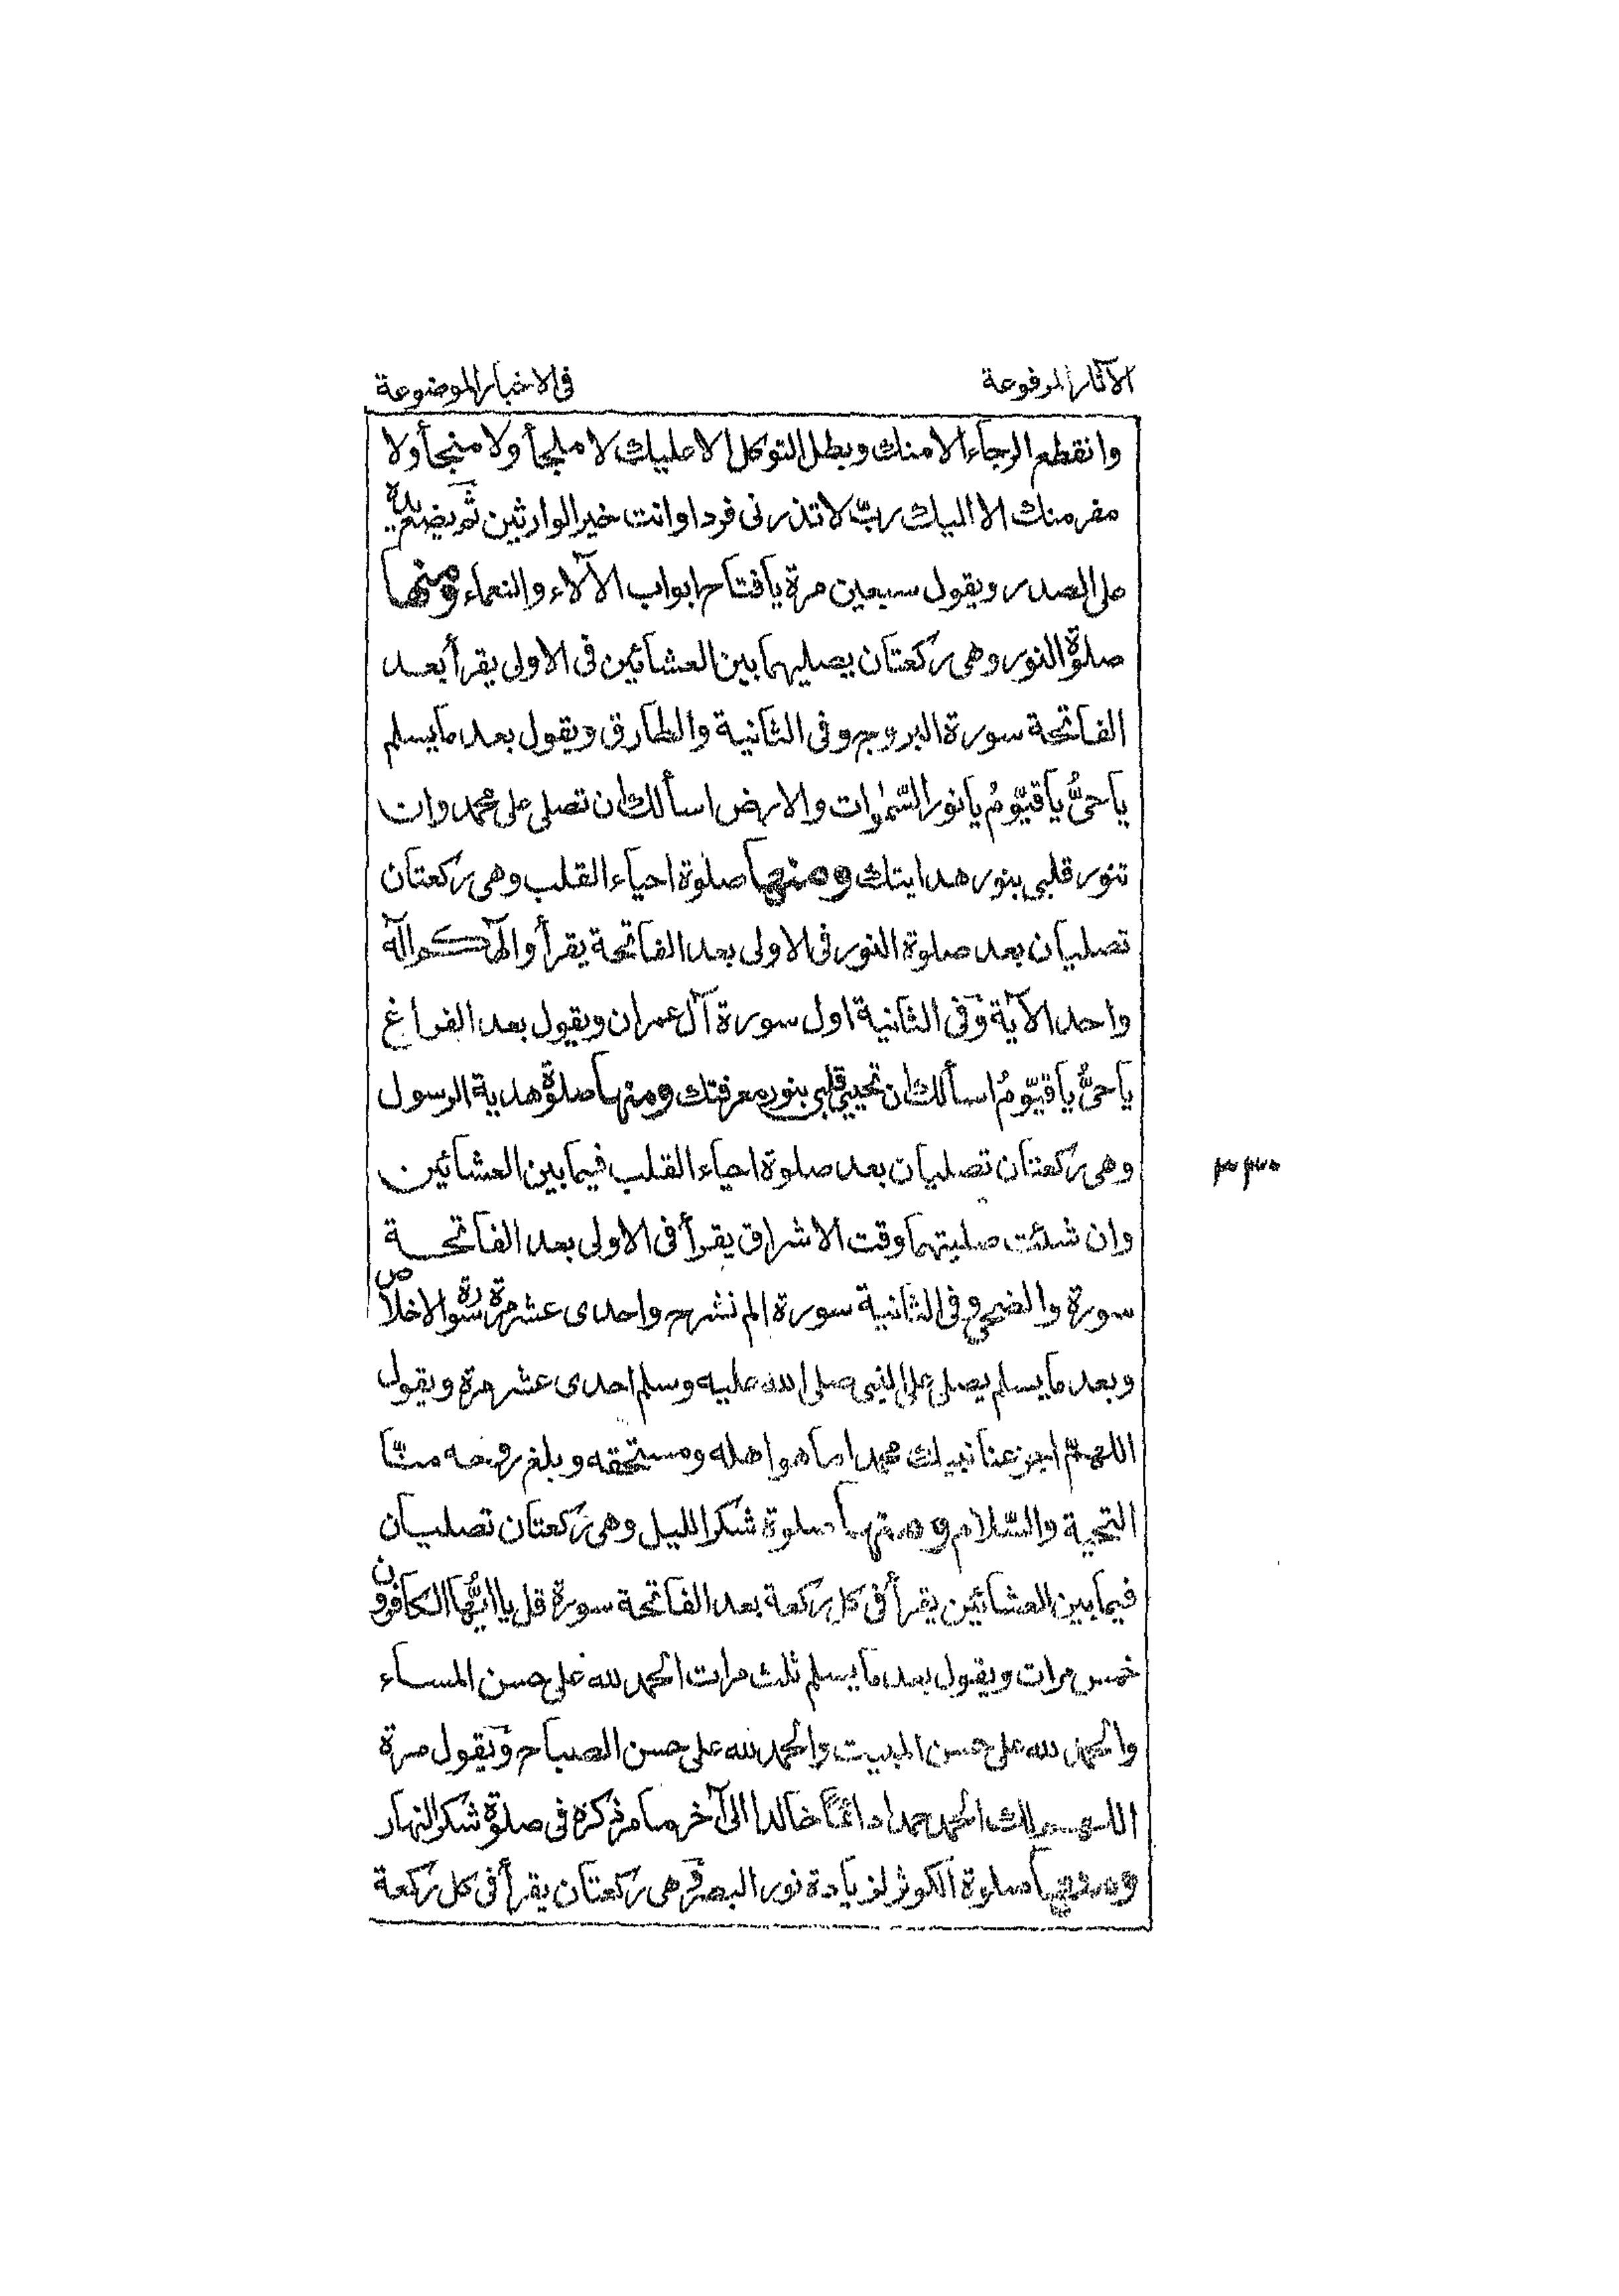 الآثار المرفوعة
فى الاخبار الموضوعة
وانقطع الرجاء الا منك وبطل التوكل الا عليك لا ملجأ ولا منجأ ولا
مفر منك الا اليك ربّ لا تذرنى فردا وانت خير الوارثين ثم يضع يده
على الصدر ويقول سبعين مرة يا فتاح ابواب الآلاء والنعماء ومنها
صلوة النور وهى ركعتان يصليهما بين العشائين فى الاولى يقرأ بعد
الفاتحة سورة البروج وفى الثانية والطارق ويقول بعد ما يسلم
يا حىُّ يا قيّومُ يا نور السّمٰوات والارض اسألك ان تصلى على محمد وان
تنور قلبى بنور هدايتك ومنها صلوة احياء القلب وهى ركعتان
تصليان بعد صلوة النور فى الاولى بعد الفاتحة يقرأ والٰهكم الٰه
واحد الآية وفى الثانية اول سورة آل عمران ويقول بعد الفراغ
يا حىُّ يا قيّومُ اسألك ان تحيى قلبى بنور معرفتك ومنها صلوة هدية الرسول
وهى ركعتان تصليان بعد صلوة احياء القلب فيما بين العشائين
وان شئت صليتهما وقت الاشراق يقرأ فى الاولى بعد الفاتحة
سورة والضحى وفى الثانية سورة الم نشرح واحدى عشر مرة سورة الاخلاص
وبعد ما يسلم يصلى على النبى صلى الله عليه وسلم احدى عشر مرة ويقول
اللهمّ اجز عنا نبيك محمدا ما هو اهله ومستحقه وبلغ روحه منّا
التحية والسّلام ومنها صلوة شكر الليل وهى ركعتان تصليان
فيما بين العشائين يقرأ فى كل ركعة بعد الفاتحة سورة قل يا ايُّها الكافرون
خمس مرات ويقول بعد ما يسلم ثلث مرات الحمد لله على حسن المساء
والحمد لله على حسن المبيت والحمد لله على حسن الصباح ويقول مرة
اللهم لك الحمد حمدا دائمًا خالدا الى آخر ما مر ذكره فى صلوة شكر النهار
ومنها صلوة الكوثر لزيادة نور البصر وهى ركعتان يقرأ فى كل ركعة